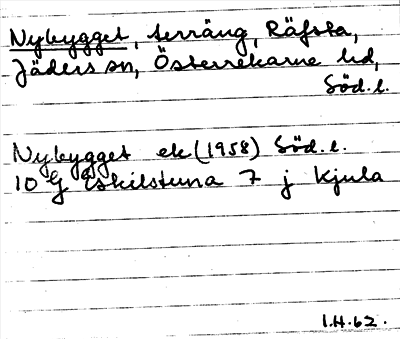 Nybygget, terräng, Räfsta,
Jäders sn, Österrekarne hd,
Söd.l.
Nybygget ek (1958) Söd.l.
10 G Eskilstuna 7 j Kjula
I.H.62.